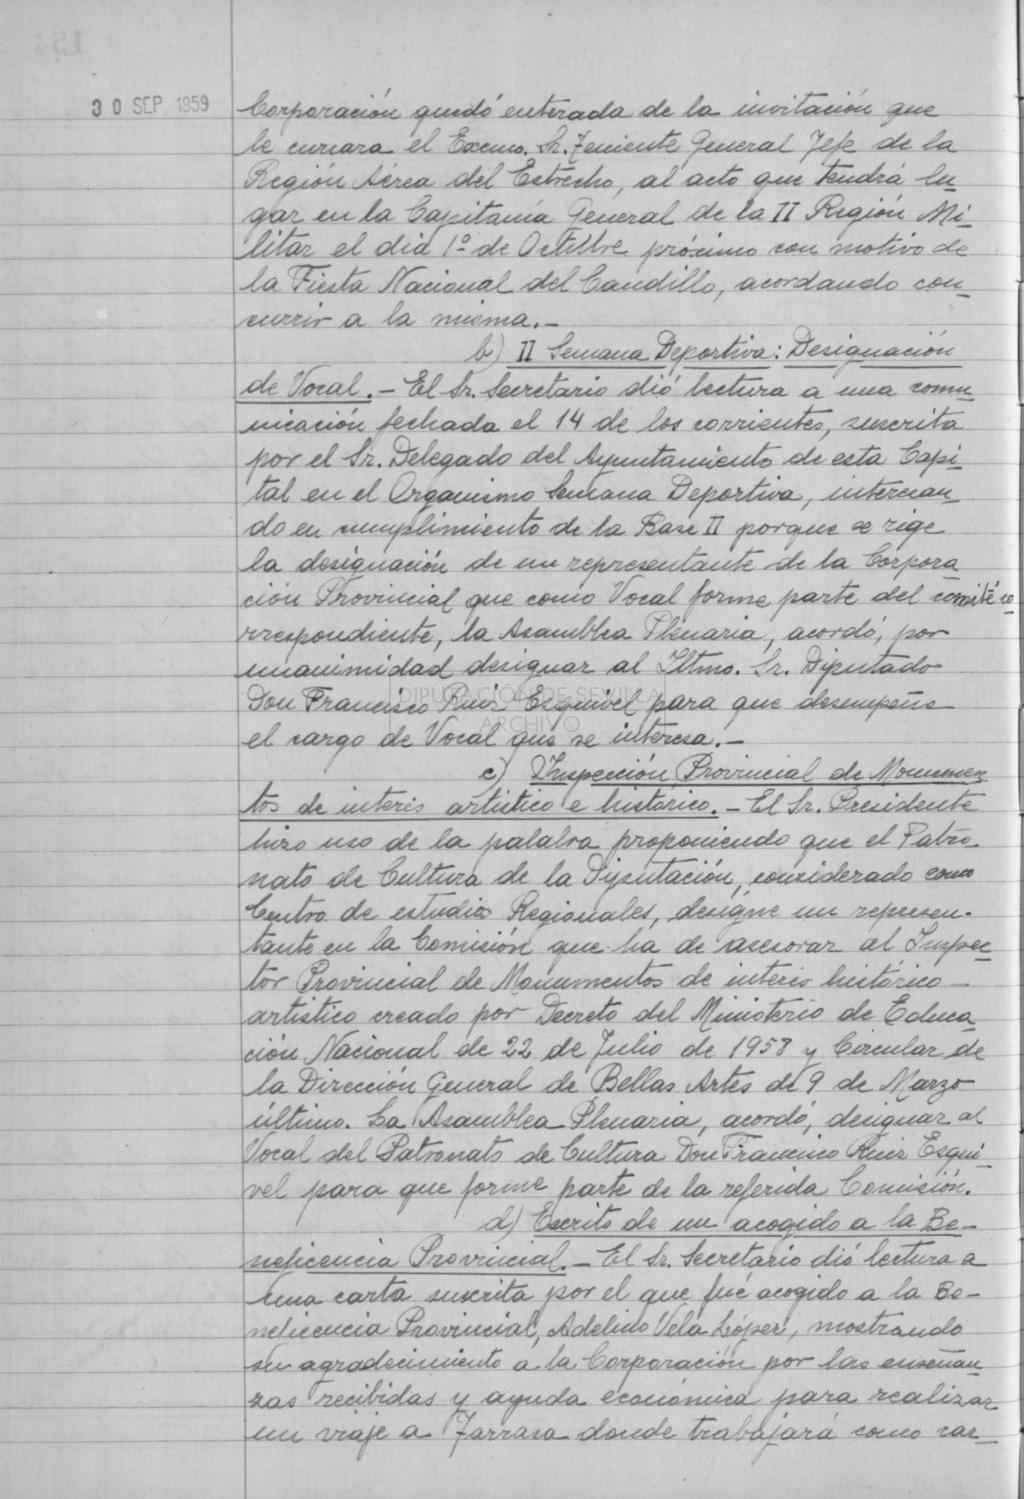 30 SEP 1959
Corporación quedó enterada de la invitación que
le cursara el Excmo. Sr. Teniente General Jefe de la
Región Aérea del Estrecho, al acto que tendrá lu-
gar en la Capitanía General de la II Región Mi-
litar el día 1º de Octubre próximo con motivo de
la Fiesta Nacional del Caudillo, acordando con-
currir a la misma.-
b) II Semana Deportiva: Designación
de Vocal.- El Sr. Secretario dió lectura a una comu
nicación fechada el 14 de los corrientes, suscrita
por el Sr. Delegado del Ayuntamiento de esta Capi-
tal en el Organismo Semana Deportiva, interesan-
do en cumplimiento de la Base II porque se rige
la designación de un representante de la Corpora
ción Provincial que como Vocal forme parte del comité co-
rrespondiente, la Asamblea Plenaria, acordó, por
unanimidad designar al Iltmo. Sr. Diputado
Don Francisco Ruiz Esquivel para que desempeñe
el cargo de Vocal que se interesa.-
c) Inspección Provincial de Monumen
tos de interés artístico e histórico.- El Sr. Presidente
hizo uso de la palabra proponiendo que el Patro-
nato de Cultura de la Diputación, considerado como
Centro de estudios Regionales, designe un represen-
tante en la Comisión que ha de asesorar al Inspec
tor Provincial de Monumentos de interés histórico-
artístico creado por Decreto del Ministerio de Educa
ción Nacional de 22 de Julio de 1958 y Circular de
la Dirección General de Bellas Artes de 9 de Marzo
último. La Asamblea Plenaria, acordó, designar al
Vocal del Patronato de Cultura Don Francisco Ruiz Esqui-
vel para que forme parte de la referida Comisión.
d) Escrito de un acogido a la Be-
neficencia Provincial.- El Sr. Secretario dió lectura a
una carta suscrita por el que fué acogido a la Be-
neficencia Provincial, Adelino Vela López, mostrando
su agradecimiento a la Corporación por las enseñan
zas recibidas y ayuda económica para realizar
un viaje a Tarrasa donde trabajará como car-
DIPUTACIÓN DE SEVILLA
ARCHIVO